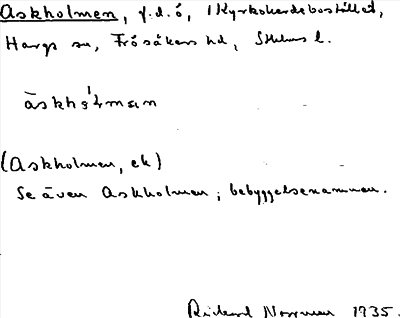 Askholmen, f.d. ö, 1 Kyrkoherdebostället,
Hargs sn, Frösåkers hd, Sthlms l.
(Askholmen, ek)
Se även Askholmen, bebyggelsenamnen.
Rickard Norrman 1935.